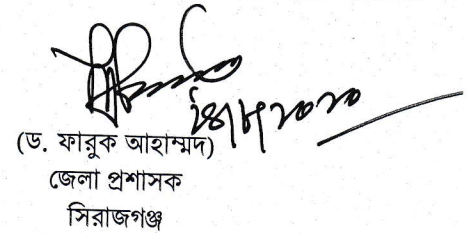 (ড. ফারুক আহাম্মদ)
জেলা প্রশাসক
সিরাজগঞ্জ